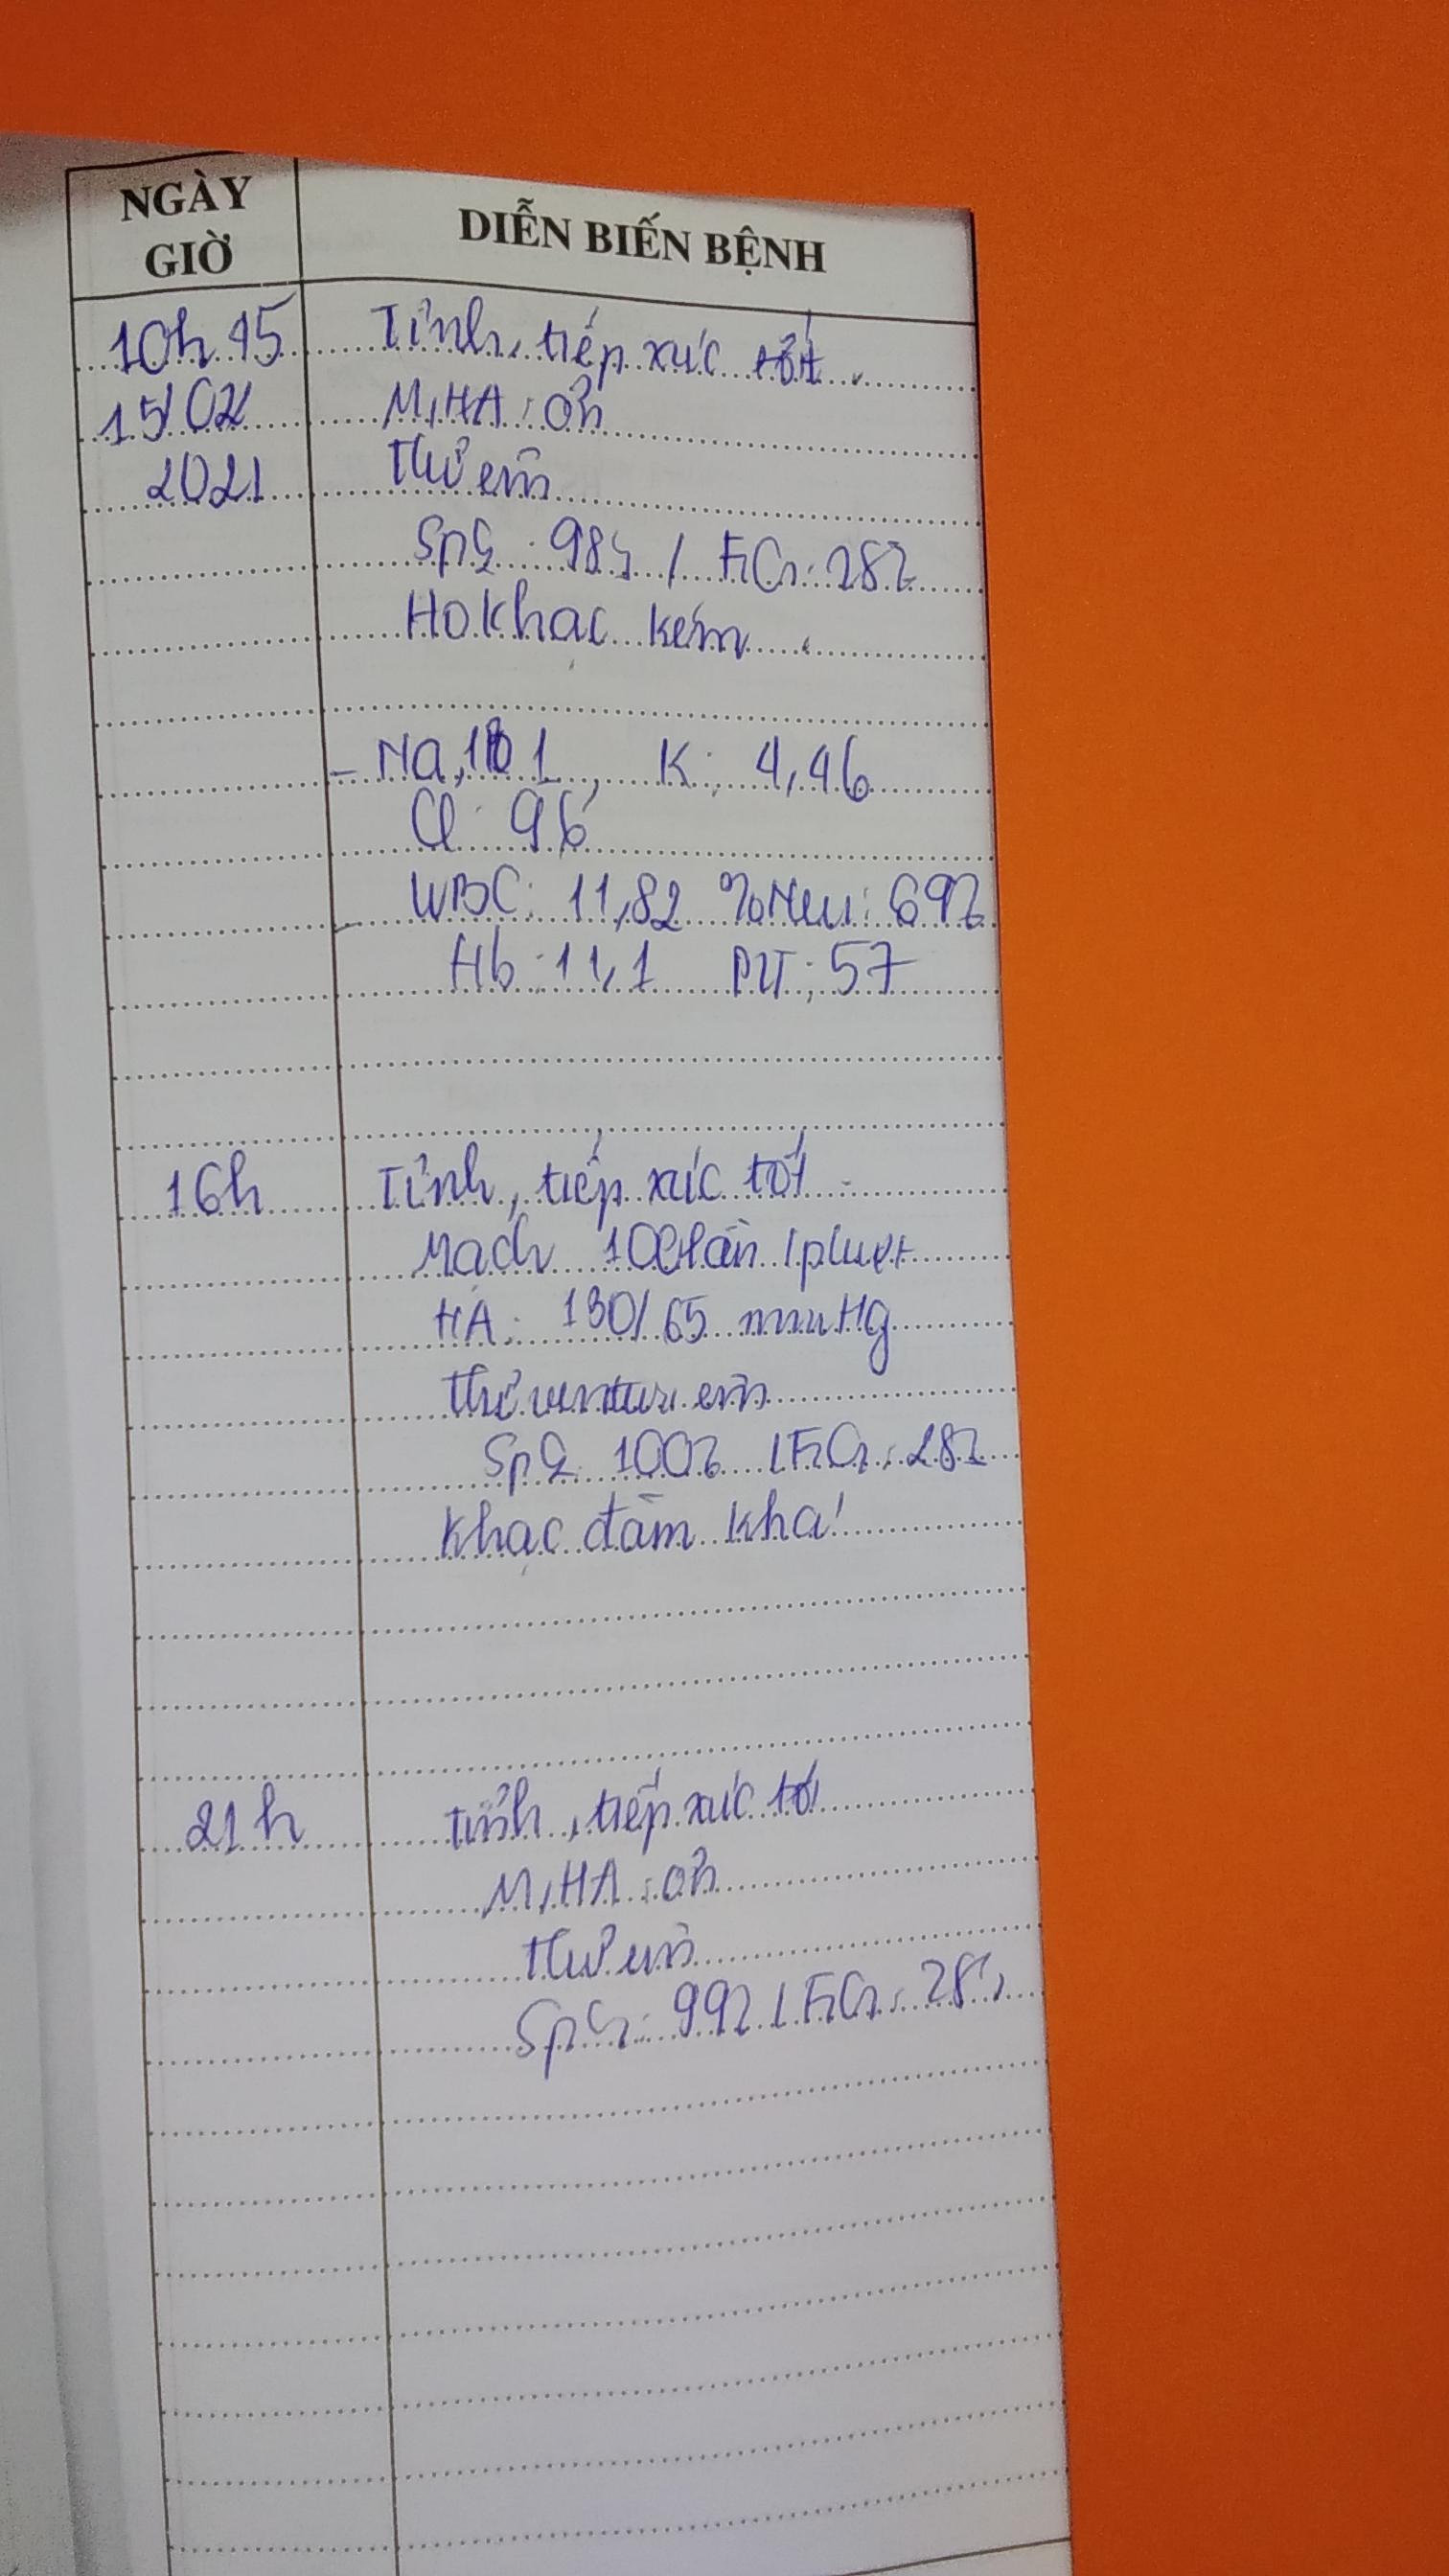 NGÀY
GIỜ
DIỄN BIẾN BỆNH
10h 45 Tỉnh, tiếp xúc tốt.
15/02 M, HA: ổn
2021 Thở êm
SpO2: 98% / FiO2: 28%
Ho khạc kém.
- Na, K: 4,46
Cl: 96
WBC: 11,82 %Neu: 69%
Hb: 11,1 PLT: 57
16h Tỉnh, tiếp xúc tốt
Mạch lần / phút
HA: 130/65 mmHg
Thở venturi êm
SpO2 100% / FiO2: 28%
Khạc đàm khá
21h Tỉnh, tiếp xúc tốt
M, HA: ổn
Thở êm
SpO2: 99% / FiO2: 28%